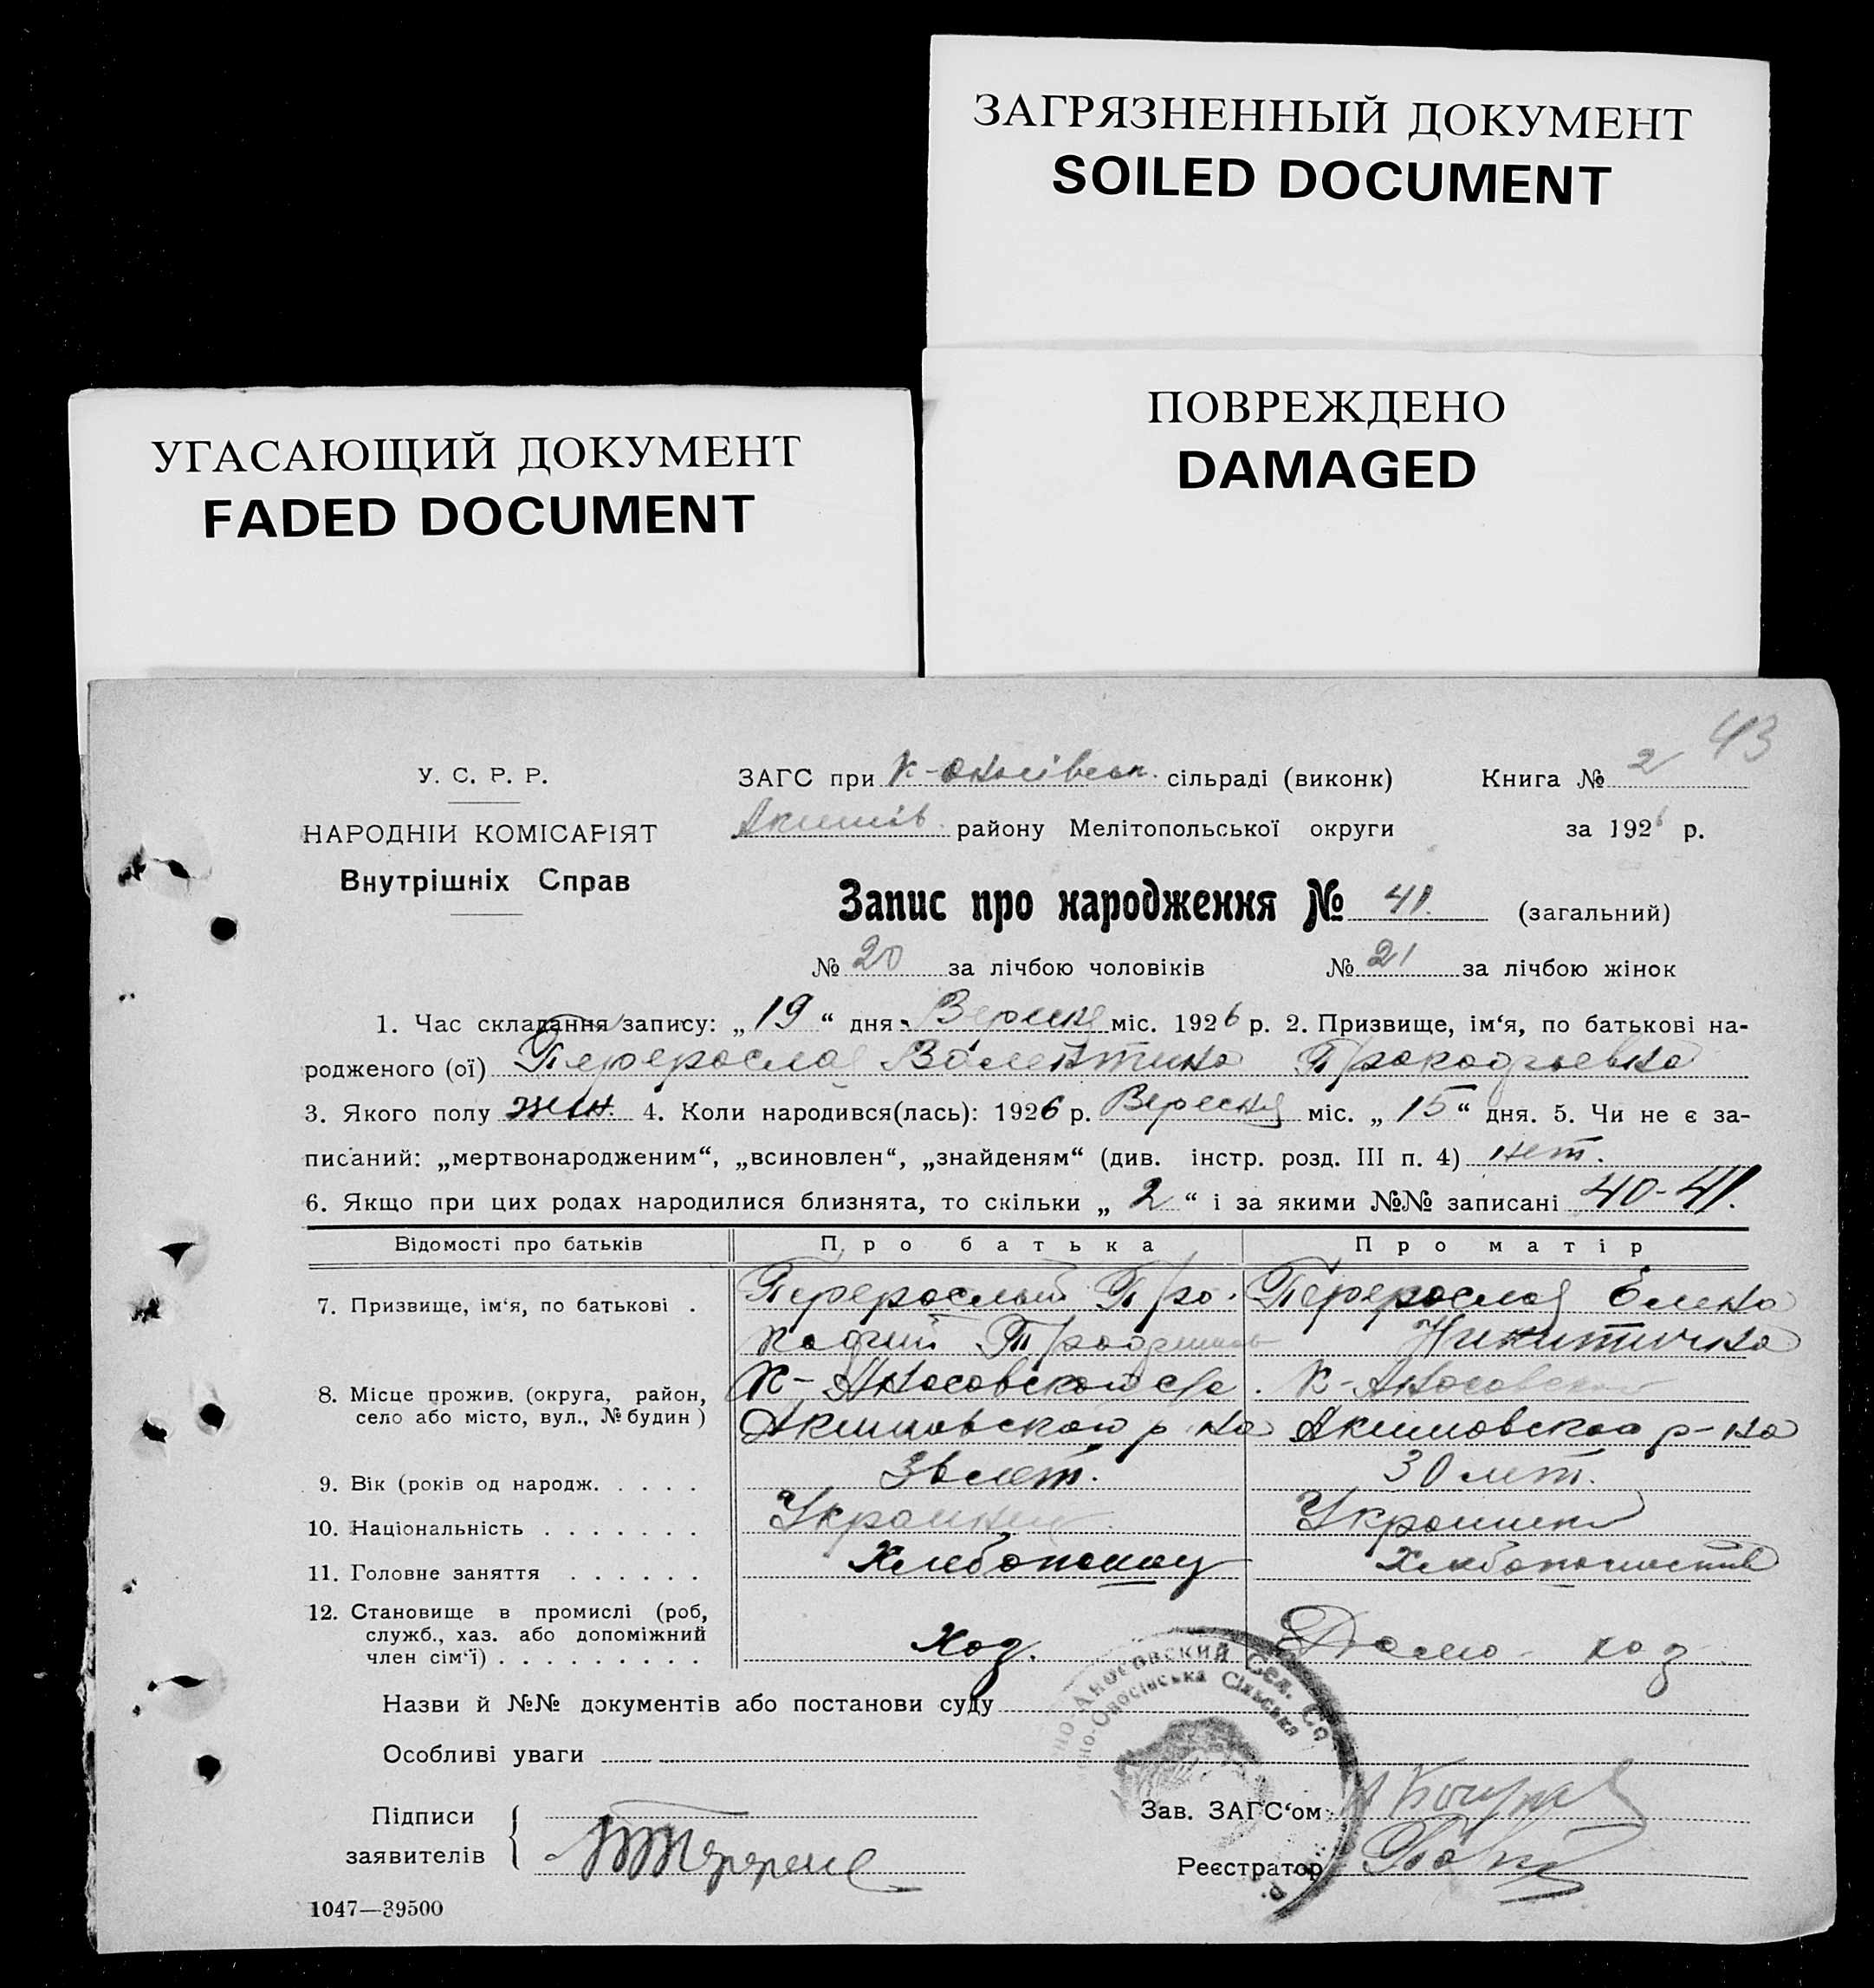 ЗАГРЯЗНЕННЫЙ ДОКУМЕНТ
SOILED DOCUMENT
УГАСАЮЩИЙ ДОКУМЕНТ
FADED DOCUMENT
ПОВРЕЖДЕНО
DAMAGED
43
У. С. Р. Р.
НАРОДНІЙ КОМІСАРІЯТ
Внутрішніх Справ
ЗАГС при сільраді (виконк) Книга № 2
Акимів. району Мелітопольської округи за 1926 р.
Запис про народження № 41. (загальний)
№ 20 за лічбою чоловіків № 21 за лічбою жінок
1. Час складання запису: „19“ дня Вересня міс. 1926 р. 2. Призвище, ім‘я, по батькові на-
родженого (ої) Перерослая Валентина
3. Якого полу жін. 4. Коли народився(лась): 1926 р. Вересня міс. „15“ дня. 5. Чи не є за-
писаний: „мертвонародженим“, „всиновлен“, „знайденям“ (див. інстр. розд. III п. 4) нет.
6. Якщо при цих родах народилися близнята, то скільки „2“ і за якими №№ записані 40-41.
Відомості про батьків Про батька Про матір
7. Призвище, ім‘я, по батькові . Перерослый Про- Перерослая Елена
Никитична
8. Місце прожив. (округа, район, К-Аносовской с/с. К-Аносовской
село або місто, вул., № будин) Акимовского р-на Акимовского р-на
9. Вік (років од народж. . . . . 36 лет. 30 лет.
10. Національність . . . . . . . Украинец Украинка
11. Головне заняття . . . . . . Хлебопашец
12. Становище в промислі (роб,
служб., хаз. або допоміжний
член сім‘ї) . . . . . . . . . Хоз. Домо-хоз
Назви й №№ документів або постанови суду
Особливі уваги
Підписи
заявителів
Зав. ЗАГС‘ом
Реєстратор
1047—39500